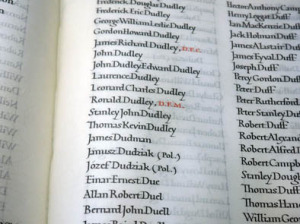 Frederick Douglas Dudley
Frederick Eric Dudley
George William Leslie Dudley
Gordon Howard Dudley
James Richard Dudley, D.F.C.
John Dudley
John Dudley Edward Dudley
Laurence Dudley
Leonard Charles Dudley
Ronald Dudley, D.F.M.
Stanley John Dudley
Thomas Kevin Dudley
James Dudman
Janusz Dudziak (Pol.)
Józef Dudziak (Pol.)
Einar Ernest Due
Allan Robert Duel
Bernard John Duell
Henry Leggat Duff
Ian MacKenzie Duff
Jack Holman Duff
James Alastair Duff
James Eyval Duff
Joseph Duff
Percy Gordon Duff
Peter Duff
Peter Rutherford
Peter Stanley Duff
Robert Duff
Robert Alexander
Robert Alfred
Robert Campbell
Stanley Douglas
Thomas Duff
Thomas
William